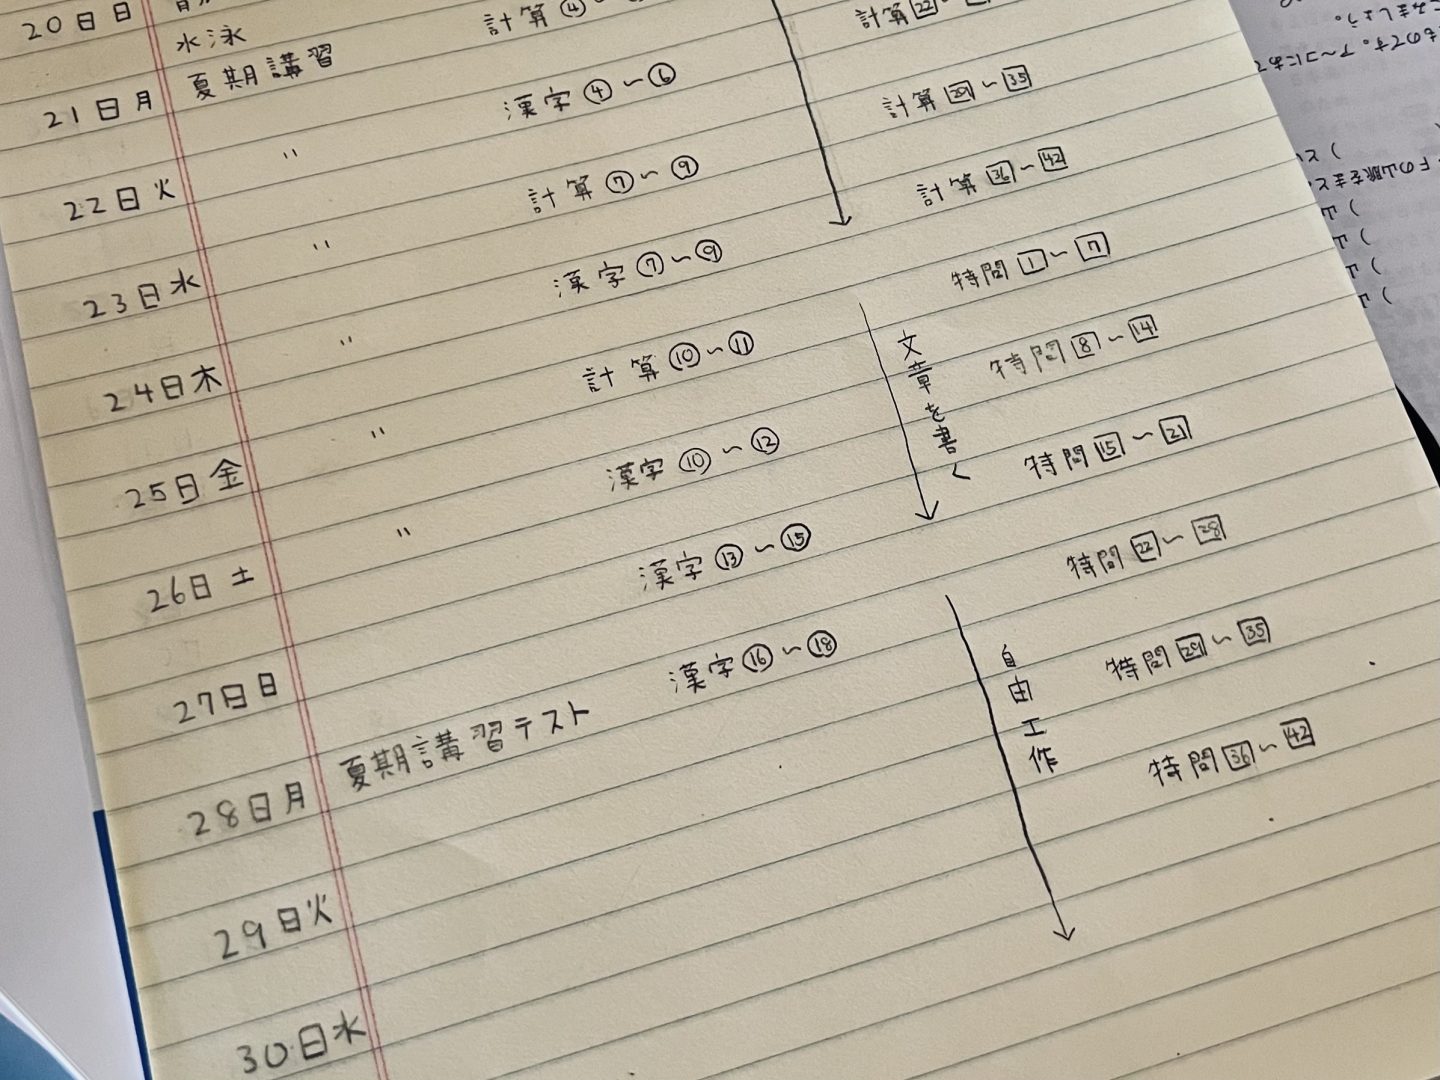 20日日
水泳
21日月 夏期講習 計算④
22日火 〃 漢字④〜⑥ 計算22〜
23日水 〃 計算⑦〜⑨ 計算29〜35
24日木 〃 漢字⑦〜⑨ 計算36〜42
25日金 〃 計算⑩〜⑪ 特問1〜7
26日土 〃 漢字⑩〜⑫ 特問8〜14
文章を書く
27日日 漢字⑬〜⑮ 特問15〜21
28日月 夏期講習テスト 漢字⑯〜⑱ 特問22〜28
29日火 特問29〜35
自由工作
30日水 特問36〜42
みましょう。
ものです。ア〜コにあ